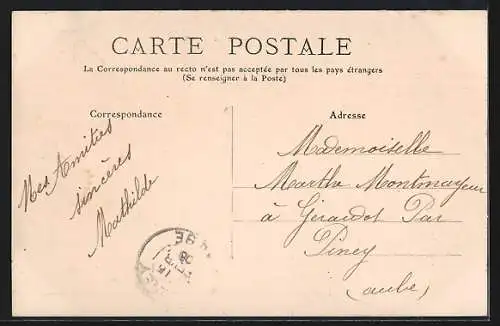 CARTE POSTALE
La Correspondance au recto n'est pas acceptée par tous les pays étrangers
(Se renseigner à la Poste)
Correspondance
Mes Amitiés
sincères
Mathilde
Adresse
Mademoiselle
Marthe Montmayeur
à Géraudot Par
Piney
(aube)